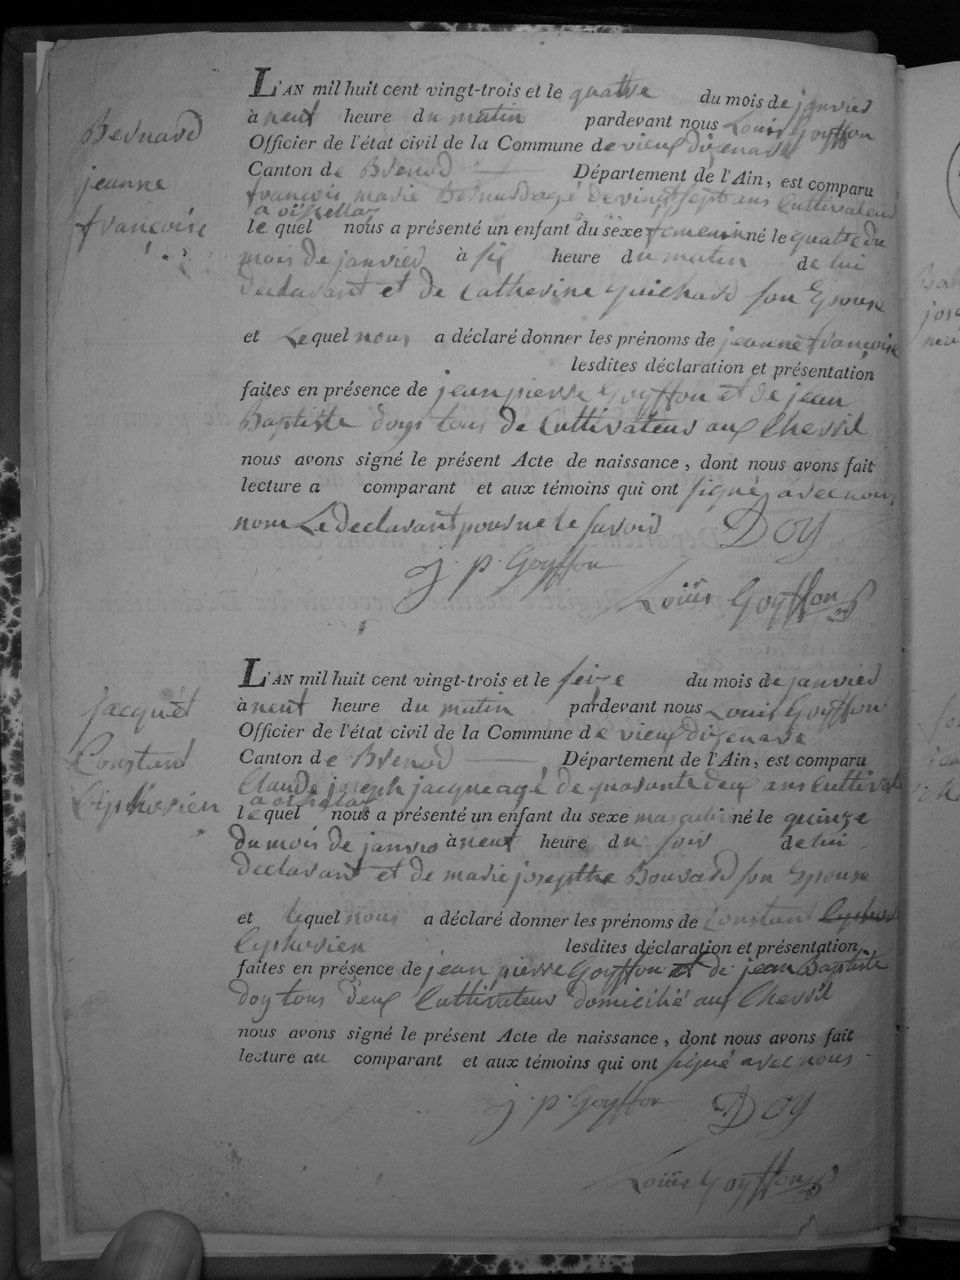 Bernard
jeanne
françoise
L'AN mil huit cent vingt-trois et le quatre du mois de janvier
à neuf heure du matin pardevant nous Louis Goyffon
Officier de l'état civil de la Commune de vieux dizenave
Canton de Brenod Département de l'Ain, est comparu
françois marie Bernard agé de vingt sept ans Cultivateur
le quel nous a présenté un enfant du sexe femeninn né le quatre du
mois de janvier à six heure du matin de lui
declarant et de Catherine guichard son Epouse
et Lequel nous a déclaré donner les prénoms de jeanne françoise
lesdites déclaration et présentation
faites en présence de jean pierre Goyffon et de jean
Baptiste doys tous de Cultivateurs aux Chevril
nous avons signé le présent Acte de naissance, dont nous avons fait
lecture a comparant et aux témoins qui ont signé avec nous
nom Le declarant pour ne le savoir DOY
j. p. Goyffon
Louis Goyffon
jacquet
Constant
Ciphorien
L'AN mil huit cent vingt-trois et le seize du mois de janvier
à neuf heure du matin pardevant nous Louis Goyffon
Officier de l'état civil de la Commune de vieux dizenave
Canton de Brenod Département de l'Ain, est comparu
Claude joseph jacque agé de quarante deux ans Cultivat
lequel nous a présenté un enfant du sexe masculin né le quinze
du mois de janvie à neuf heure du soir de lui
declarant et de marie josepthe Bouvard son Epouse
et lequel nous a déclaré donner les prénoms de Constant
Cyphorien lesdites déclaration et présentation
faites en présence de jean pierre Goyffon et de jean Baptiste
doy tous deux Cultivateur domicilié aux Chevril
nous avons signé le présent Acte de naissance, dont nous avons fait
lecture au comparant et aux témoins qui ont signé avec nous
j. p. Goyffon DOY
Louis Goyffon